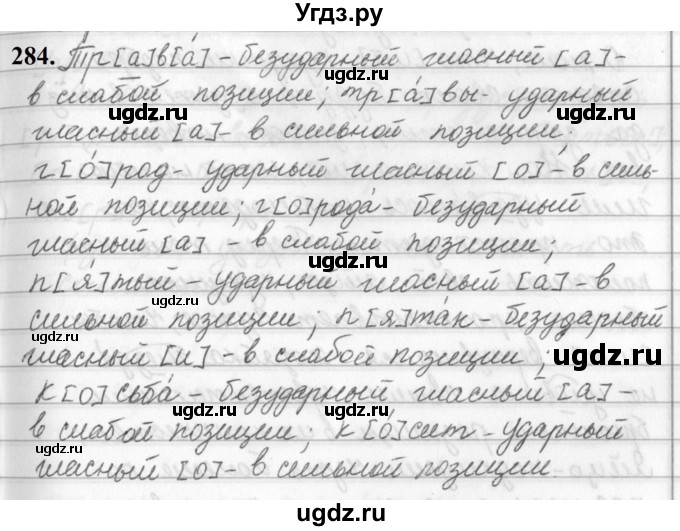 Угдз.ру
284. Тр[а]в[а́] - безударный гласный [а] -
в слабой позиции; тр[а́]вы - ударный
гласный [а] - в сильной позиции.
г[о́]род - ударный гласный [о] - в силь-
ной позиции; г[о]рода́ - безударный
гласный [а] - в слабой позиции;
п[я́]тый - ударный гласный [а] - в
сильной позиции; п[я]та́к - безударный
гласный [и] - в слабой позиции;
к[о]сьба́ - безударный гласный [а] -
в слабой позиции; к[о́]сит - ударный
гласный [о] - в сильной позиции.
ugdz.ru
ugdz.ru
ugdz.ru
ugdz.ru
ugdz.ru
ugdz.ru
ugdz.ru
ugdz.ru
ugdz.ru
ugdz.ru
ugdz.ru
ugdz.ru